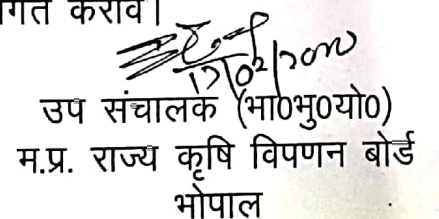 करावें।
17/02/2000
उप संचालक (भा0भु0यो0)
म.प्र. राज्य कृषि विपणन बोर्ड
भोपाल